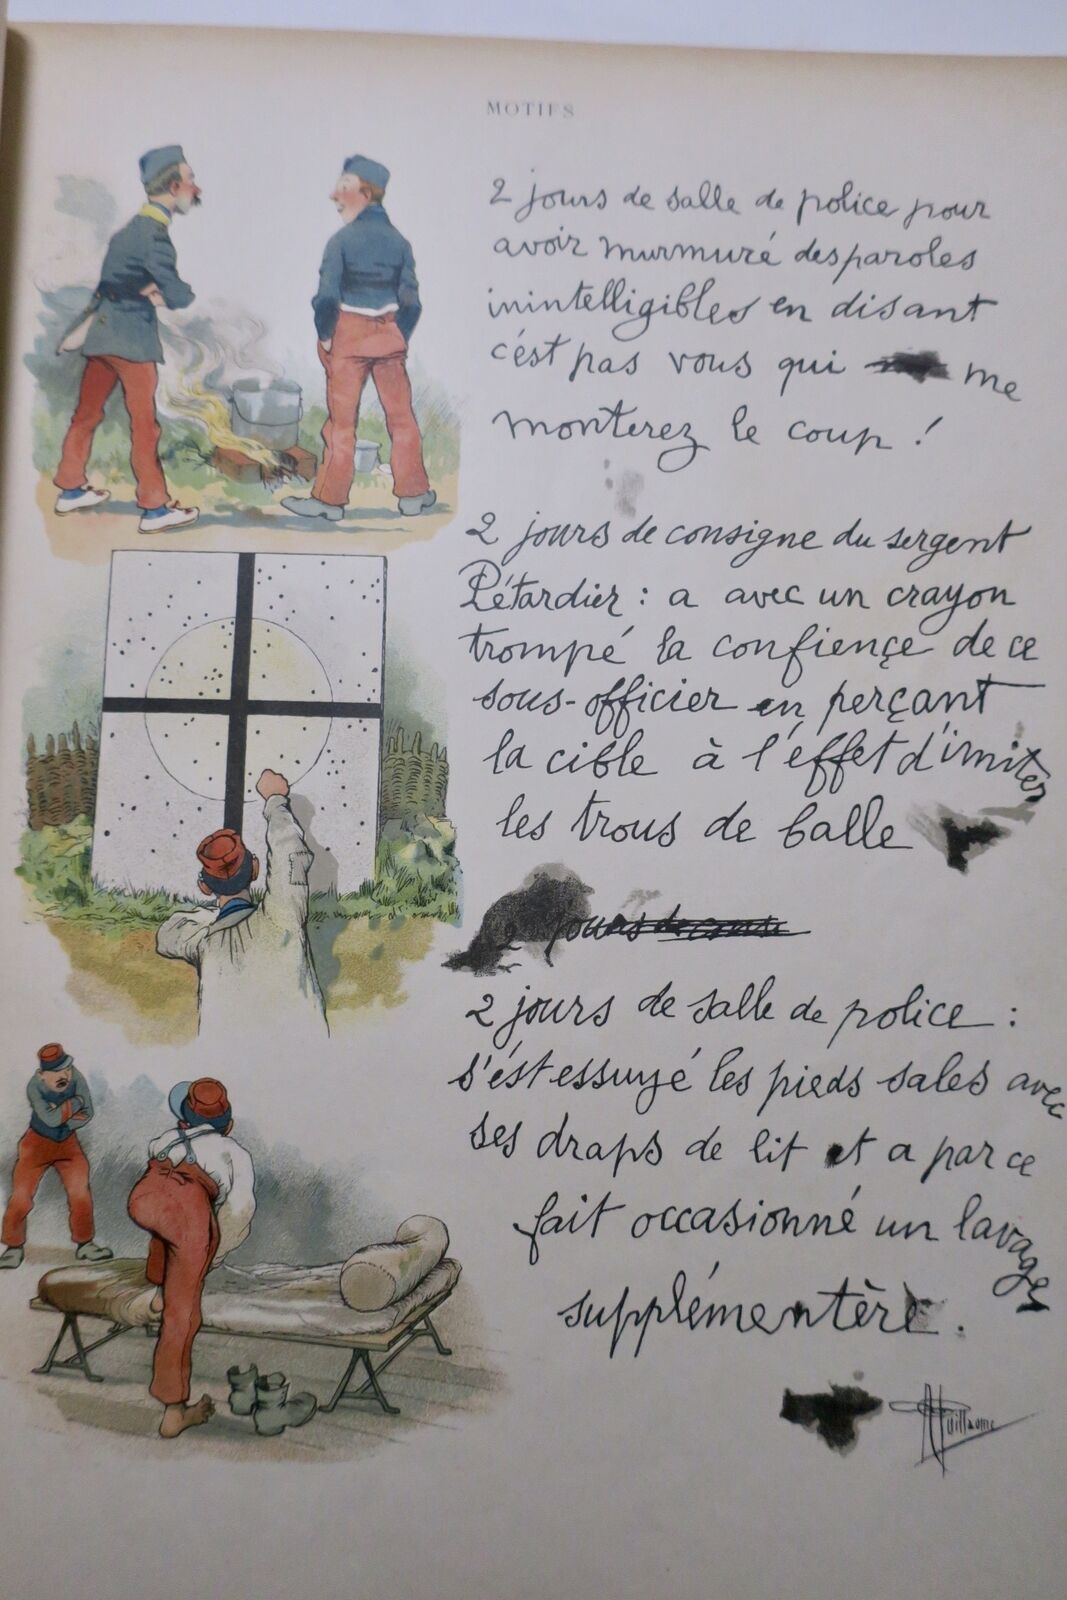 MOTIFS
2 jours de salle de police pour
avoir murmuré des paroles
inintelligibles en disant
c'est pas vous qui me
monterez le coup !
2 jours de consigne du sergent
Pétardier : a avec un crayon
trompé la confiençe de ce
sous-officier en perçant
la cible à l'éffet d'imiter
les trous de balle
2 jours de cons
2 jours de salle de police :
s'ést essuyé les pieds sales avec
ses draps de lit et a par ce
fait occasionné un lavages
supplémentère.
AGuillaume